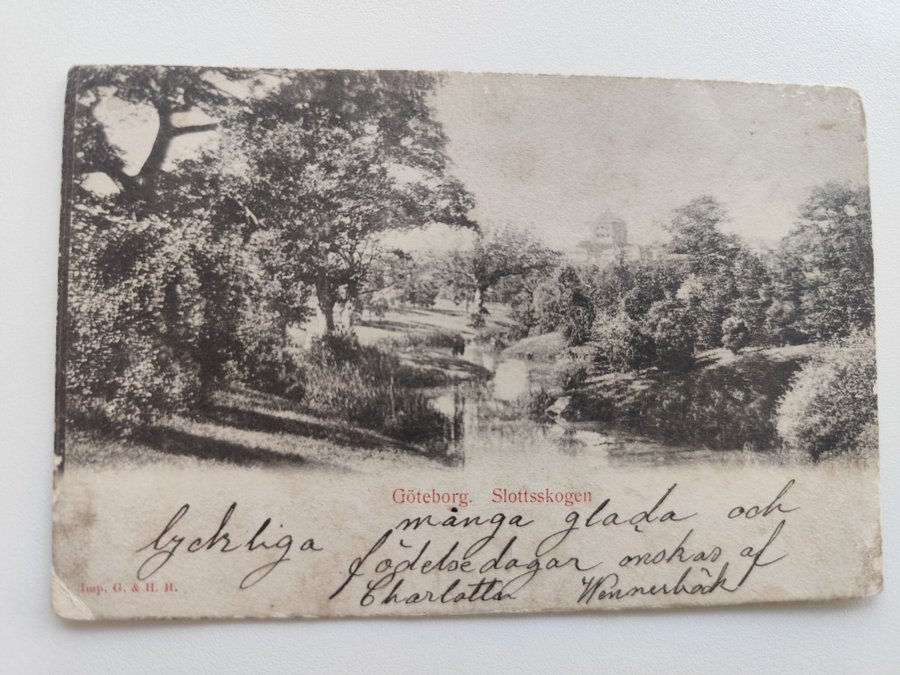 Göteborg. Slottsskogen
lyckliga många glada och
födelsedagar önskas af
Charlotta Wennerbäck
Imp. G. & H. H.